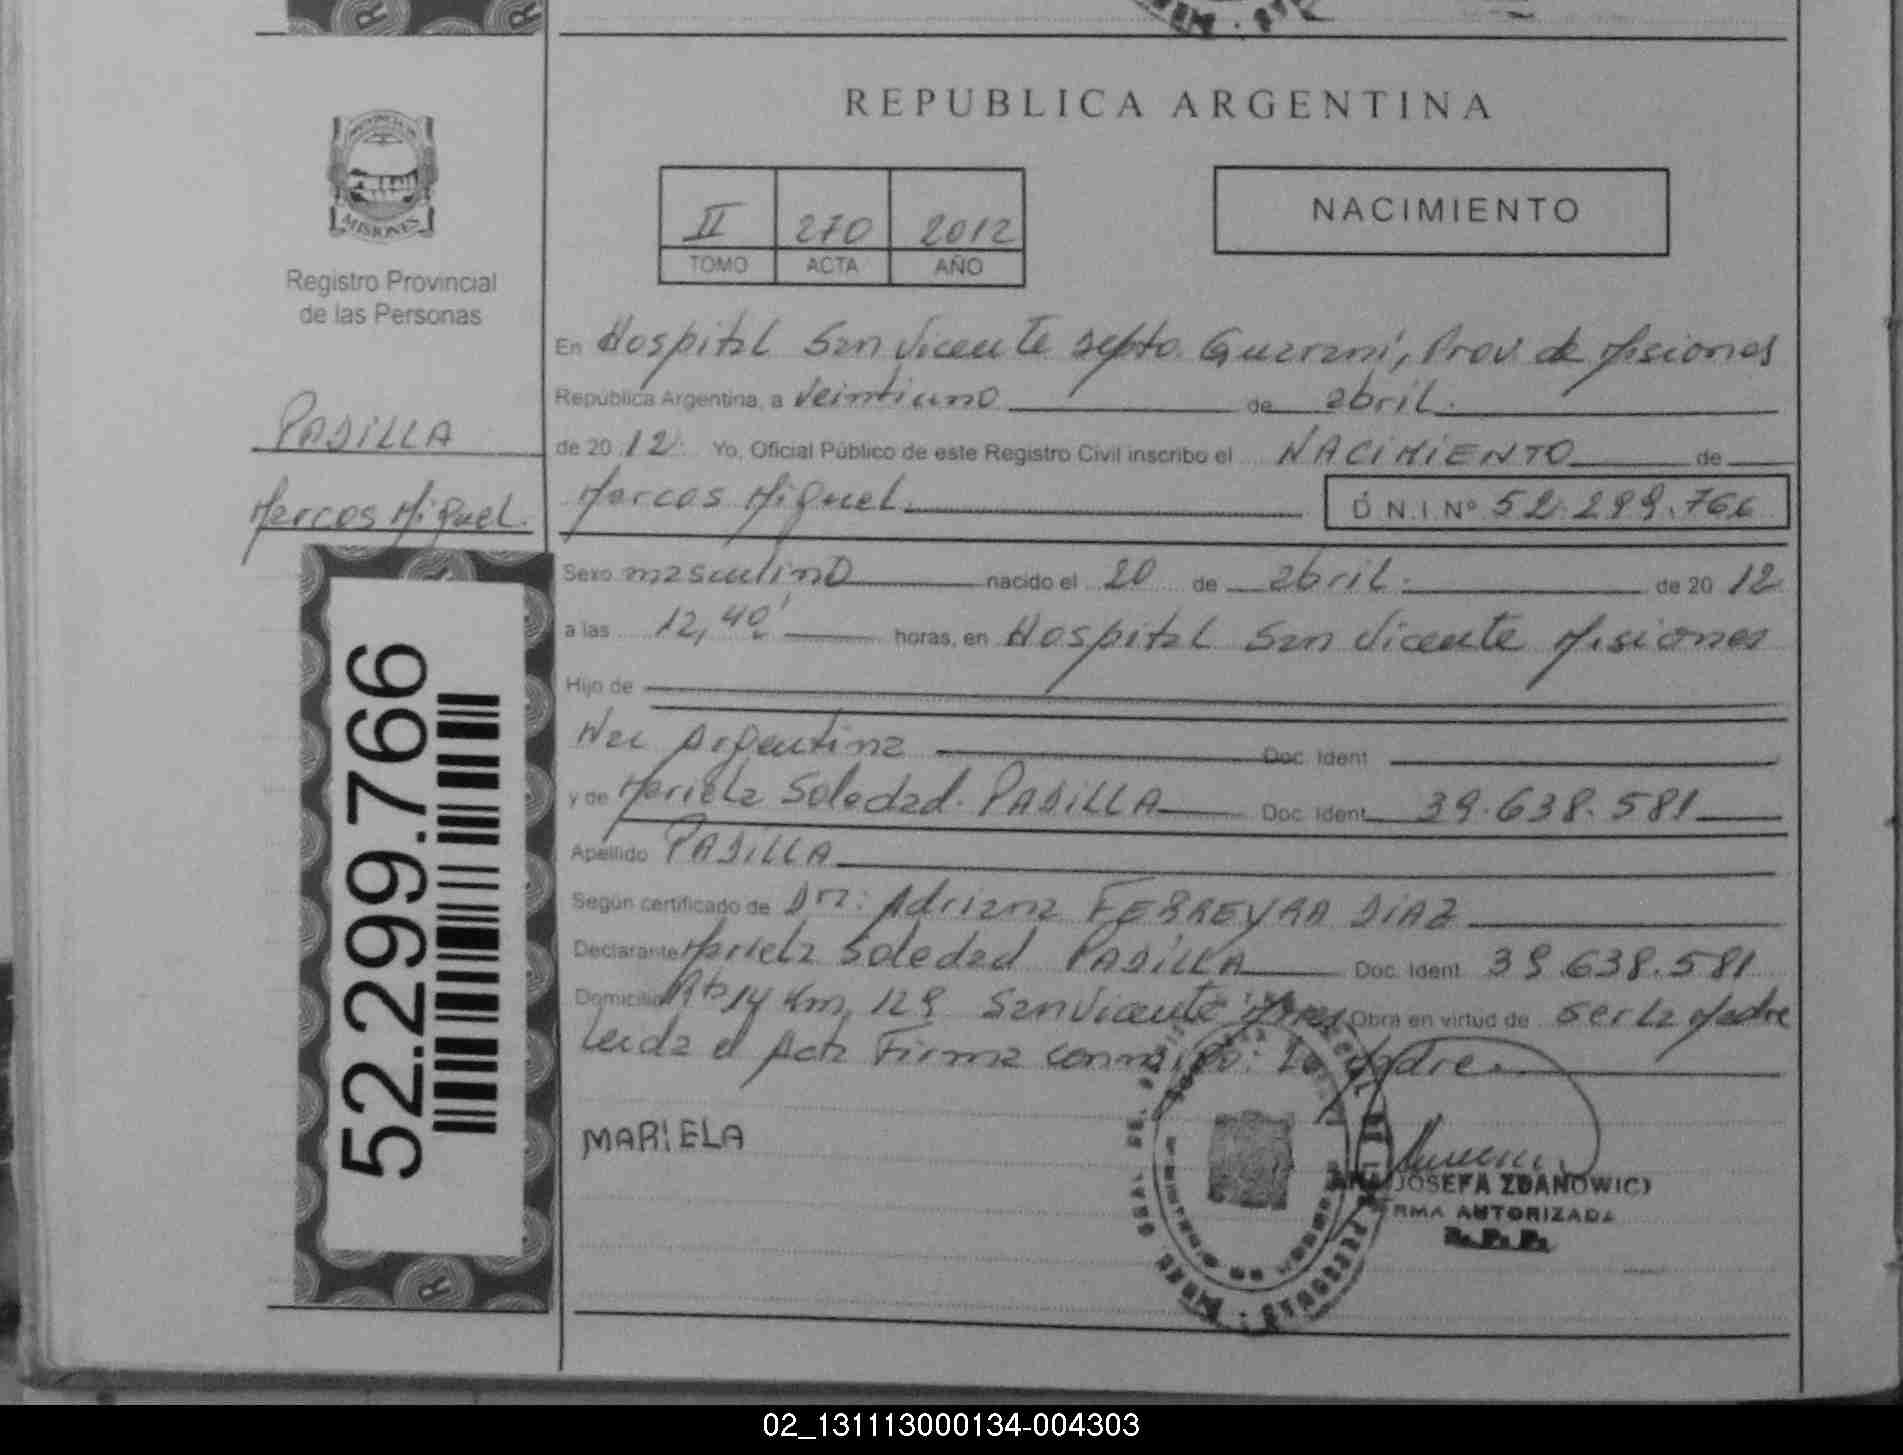 REPUBLICA ARGENTINA
PROVINCIA DE
MISIONES
Registro Provincial
de las Personas
PADILLA
Marcos Miguel.
52.299.766
II 270 2012
TOMO ACTA AÑO
NACIMIENTO
En Hospital San Vicente Depto. Guarani, Prov. de Misiones
República Argentina, a veintiuno de abril.
de 20 12. Yo, Oficial Público de este Registro Civil inscribo el NACIMIENTO de
Marcos Miguel. D.N.I. Nº 52.299.766
Sexo masculino nacido el 20 de abril. de 20 12
a las 12,40' horas, en Hospital San Vicente Misiones
Hijo de
Nac Argentina Doc. Ident
y de Mariela Soledad. PADILLA Doc. Ident. 39.638.581
Apellido PADILLA
Según certificado de Dra: Adriana FERREYRA DIAZ
Declarante Mariela Soledad PADILLA Doc. Ident. 39.638.581
Domicilio Rta 14 Km, 129 San Vicente Mnes Obra en virtud de ser la Madre
Leida el Acta Firma conmigo: La Madre.
MARIELA
JOSEFA ZDANOWICZ
FIRMA AUTORIZADA
R. P. P.
02_131113000134-004303